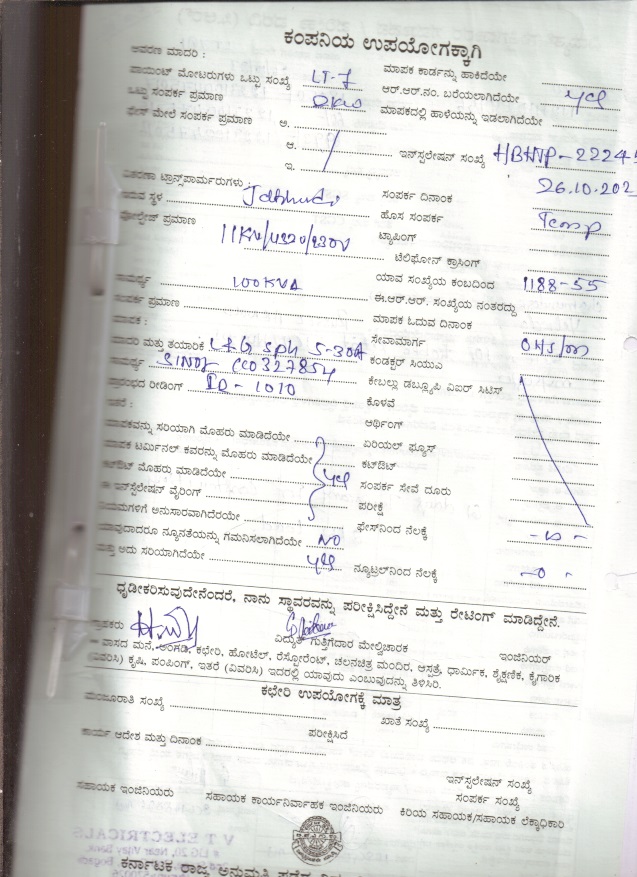 ಕಂಪನಿಯ ಉಪಯೋಗಕ್ಕಾಗಿ
ಆವರಣ ಮಾದರಿ :
ಮಾಪಕ ಕಾರ್ಡನ್ನು ಹಾಕಿದೆಯೇ
ಪಾಯಿಂಟ್ ಮೋಟರುಗಳು ಒಟ್ಟು ಸಂಖ್ಯೆ LT-7
ಆರ್.ಆರ್.ನಂ. ಬರೆಯಲಾಗಿದೆಯೇ yes
ಒಟ್ಟು ಸಂಪರ್ಕ ಪ್ರಮಾಣ
ಮಾಪಕದಲ್ಲಿ ಹಾಳೆಯನ್ನು ಇಡಲಾಗಿದೆಯೇ
ಫೇಸ್ ಮೇಲೆ ಸಂಪರ್ಕ ಪ್ರಮಾಣ ಅ.
ಆ.
ಇನ್‌ಸ್ಟಲೇಷನ್ ಸಂಖ್ಯೆ HBHNP-22245
ಇ.
ವಿತರಣಾ ಟ್ರಾನ್ಸ್‌ಪಾರ್ಮರುಗಳು :
ಸಂಪರ್ಕ ದಿನಾಂಕ 26.10.202
ಇರುವ ಸ್ಥಳ
ಹೊಸ ಸಂಪರ್ಕ Temp
ವೋಲ್ಟೇಜ್ ಪ್ರಮಾಣ 11KV/430/230V
ಟ್ಯಾಪಿಂಗ್
ಟೆಲಿಫೋನ್ ಕ್ರಾಸಿಂಗ್
ಸಾಮರ್ಥ್ಯ 100KVA
ಯಾವ ಸಂಖ್ಯೆಯ ಕಂಬದಿಂದ 1188-55
ಸಂಪರ್ಕ ಪ್ರಮಾಣ
ಈ.ಆರ್.ಆರ್. ಸಂಖ್ಯೆಯ ನಂತರದ್ದು
ಮಾಪಕ :
ಮಾಪಕ ಓದುವ ದಿನಾಂಕ
ಮಾದರಿ ಮತ್ತು ತಯಾರಿಕೆ L&G SPH 5-30A
ಸೇವಾಮಾರ್ಗ
ಸಾಮರ್ಥ್ಯ CC0327854
ಕಂಡಕ್ಟರ್ ಸಿಯುವಿ
ಪ್ರಾರಂಭದ ರೀಡಿಂಗ್ IR - 1010
ಕೇಬಲ್ಲು ಡಬ್ಲ್ಯೂಪಿ ಎಐರ್ ಸಿಟಿಸ್
ಕೊಳವೆ
ಇತರೆ :
ಆರ್ಥಿಂಗ್
ಮಾಪಕವನ್ನು ಸರಿಯಾಗಿ ಮೊಹರು ಮಾಡಿದೆಯೇ
ಏರಿಯಲ್ ಫ್ಯೂಸ್
ಮಾಪಕ ಟರ್ಮಿನಲ್ ಕವರನ್ನು ಮೊಹರು ಮಾಡಿದೆಯೇ
ಕಟ್‌ಔಟ್
ಕಟ್‌ಔಟ್ ಮೊಹರು ಮಾಡಿದೆಯೇ yes
ಸಂಪರ್ಕ ಸೇವೆ ದೂರು
ಈ ಇನ್‌ಸ್ಟಲೇಷನ್ ವೈರಿಂಗ್
ಪರೀಕ್ಷೆ
ನಿಯಮಗಳಿಗೆ ಅನುಸಾರವಾಗಿದೆಯೇ
ಫೇಸ್‌ನಿಂದ ನೆಲಕ್ಕೆ
ಯಾವುದಾದರೂ ನ್ಯೂನತೆಯನ್ನು ಗಮನಿಸಲಾಗಿದೆಯೇ NO
ಮತ್ತು ಅದು ಸರಿಯಾಗಿದೆಯೇ yes
ನ್ಯೂಟ್ರಲ್‌ನಿಂದ ನೆಲಕ್ಕೆ
ಧೃಡೀಕರಿಸುವುದೇನೆಂದರೆ, ನಾನು ಸ್ಥಾವರವನ್ನು ಪರೀಕ್ಷಿಸಿದ್ದೇನೆ ಮತ್ತು ರೇಟಿಂಗ್ ಮಾಡಿದ್ದೇನೆ.
ವಿದ್ಯುತ್ ಗುತ್ತಿಗೆದಾರ ಮೇಲ್ವಿಚಾರಕ
ಇಂಜಿನಿಯರ್
ವಾಸದ ಮನೆ, ಅಂಗಡಿ, ಕಛೇರಿ, ಹೋಟೆಲ್, ರೆಸ್ಟೋರೆಂಟ್, ಚಲನಚಿತ್ರ ಮಂದಿರ, ಆಸ್ಪತ್ರೆ, ಧಾರ್ಮಿಕ, ಶೈಕ್ಷಣಿಕ, ಕೈಗಾರಿಕ
(ವಿವರಿಸಿ) ಕೃಷಿ, ಪಂಪಿಂಗ್, ಇತರೆ (ವಿವರಿಸಿ) ಇದರಲ್ಲಿ ಯಾವುದು ಎಂಬುವುದನ್ನು ತಿಳಿಸಿರಿ.
ಕಛೇರಿ ಉಪಯೋಗಕ್ಕೆ ಮಾತ್ರ
ಮಂಜೂರಾತಿ ಸಂಖ್ಯೆ
ಖಾತೆ ಸಂಖ್ಯೆ
ಪರೀಕ್ಷಿಸಿದೆ
ಕಾರ್ಯ ಆದೇಶ ಮತ್ತು ದಿನಾಂಕ
ಇನ್‌ಸ್ಟಲೇಷನ್ ಸಂಖ್ಯೆ
ಸಂಪರ್ಕ ಸಂಖ್ಯೆ
ಸಹಾಯಕ ಇಂಜಿನಿಯರು
ಸಹಾಯಕ ಕಾರ್ಯನಿರ್ವಾಹಕ ಇಂಜಿನಿಯರು
ಕಿರಿಯ ಸಹಾಯಕ/ಸಹಾಯಕ ಲೆಕ್ಕಾಧಿಕಾರಿ
V T ELECTRICALS
ಕರ್ನಾಟಕ ರಾಜ್ಯ ಅನುಮತಿ ಪಡೆದ